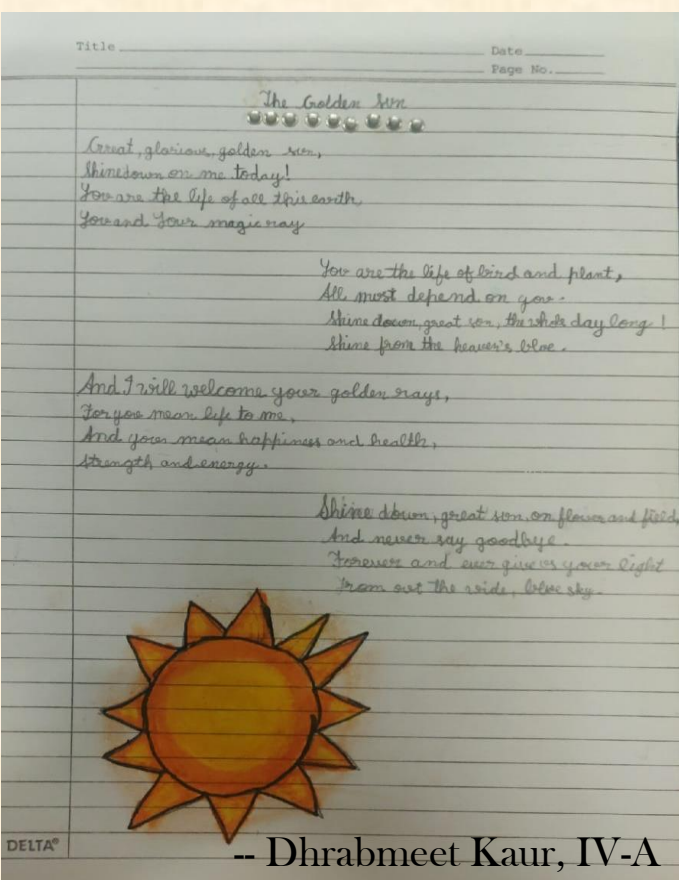 Title
Date
Page No.
The Golden Sun
Great, glorious, golden sun,
Shine down on me today!
You are the life of all this earth
You and Your magic ray
You are the life of bird and plant,
All most depend on you.
Shine down, great son, the whole day long!
Shine from the heaven's blue.
And I will welcome your golden rays,
For you mean life to me,
And your mean happiness and health,
strength and energy.
Shine down, great son, on flower and field,
And never say goodbye.
Forever and ever give us your light
From out the wide, blue sky.
DELTA®
-- Dhrabmeet Kaur, IV-A